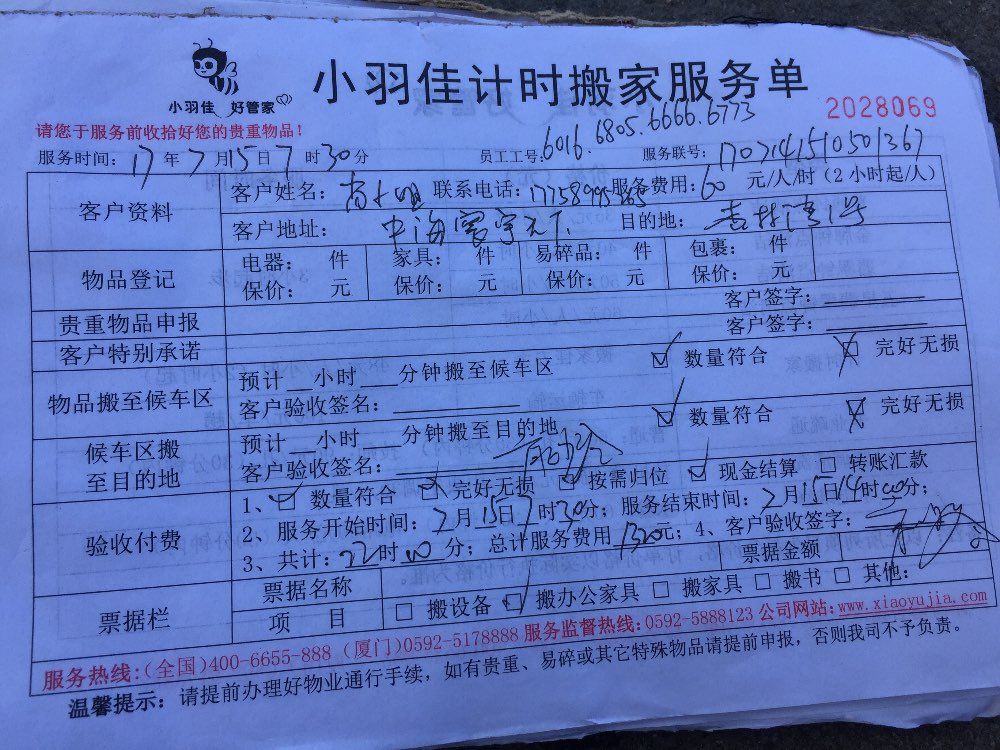 小羽佳 好管家
小羽佳计时搬家服务单
2028069
请您于服务前收拾好您的贵重物品！
服务时间：17年7月15日7时30分 员工工号：6016.6805.6666.6773 服务联号：
客户资料
客户姓名： 联系电话： 服务费用：60元/人/时（2小时起/人）
客户地址： 中海寰宇天下 目的地： 杏林湾1号
物品登记
电器： 件 家具： 件 易碎品： 件 包裹： 件
保价： 元 保价： 元 保价： 元 保价： 元
贵重物品申报 客户签字：
客户特别承诺 客户签字：
物品搬至候车区
预计 小时 分钟搬至候车区 数量符合 完好无损
客户验收签名：
候车区搬至目的地
预计 小时 分钟搬至目的地 数量符合 完好无损
客户验收签名：
验收付费
1、数量符合 完好无损 按需归位 现金结算 转账汇款
2、服务开始时间：7月15日7时30分；服务结束时间：7月15日14时00分；
3、共计：22时00分；总计服务费用1320元；4、客户验收签字：
票据栏
票据名称 票据金额
项 目 搬设备 搬办公家具 搬家具 搬书 其他：
服务热线：(全国)400-6655-888 (厦门)0592-5178888 服务监督热线：0592-5888123 公司网站：www.xiaoyujia.com
温馨提示：请提前办理好物业通行手续，如有贵重、易碎或其它特殊物品请提前申报，否则我司不予负责。